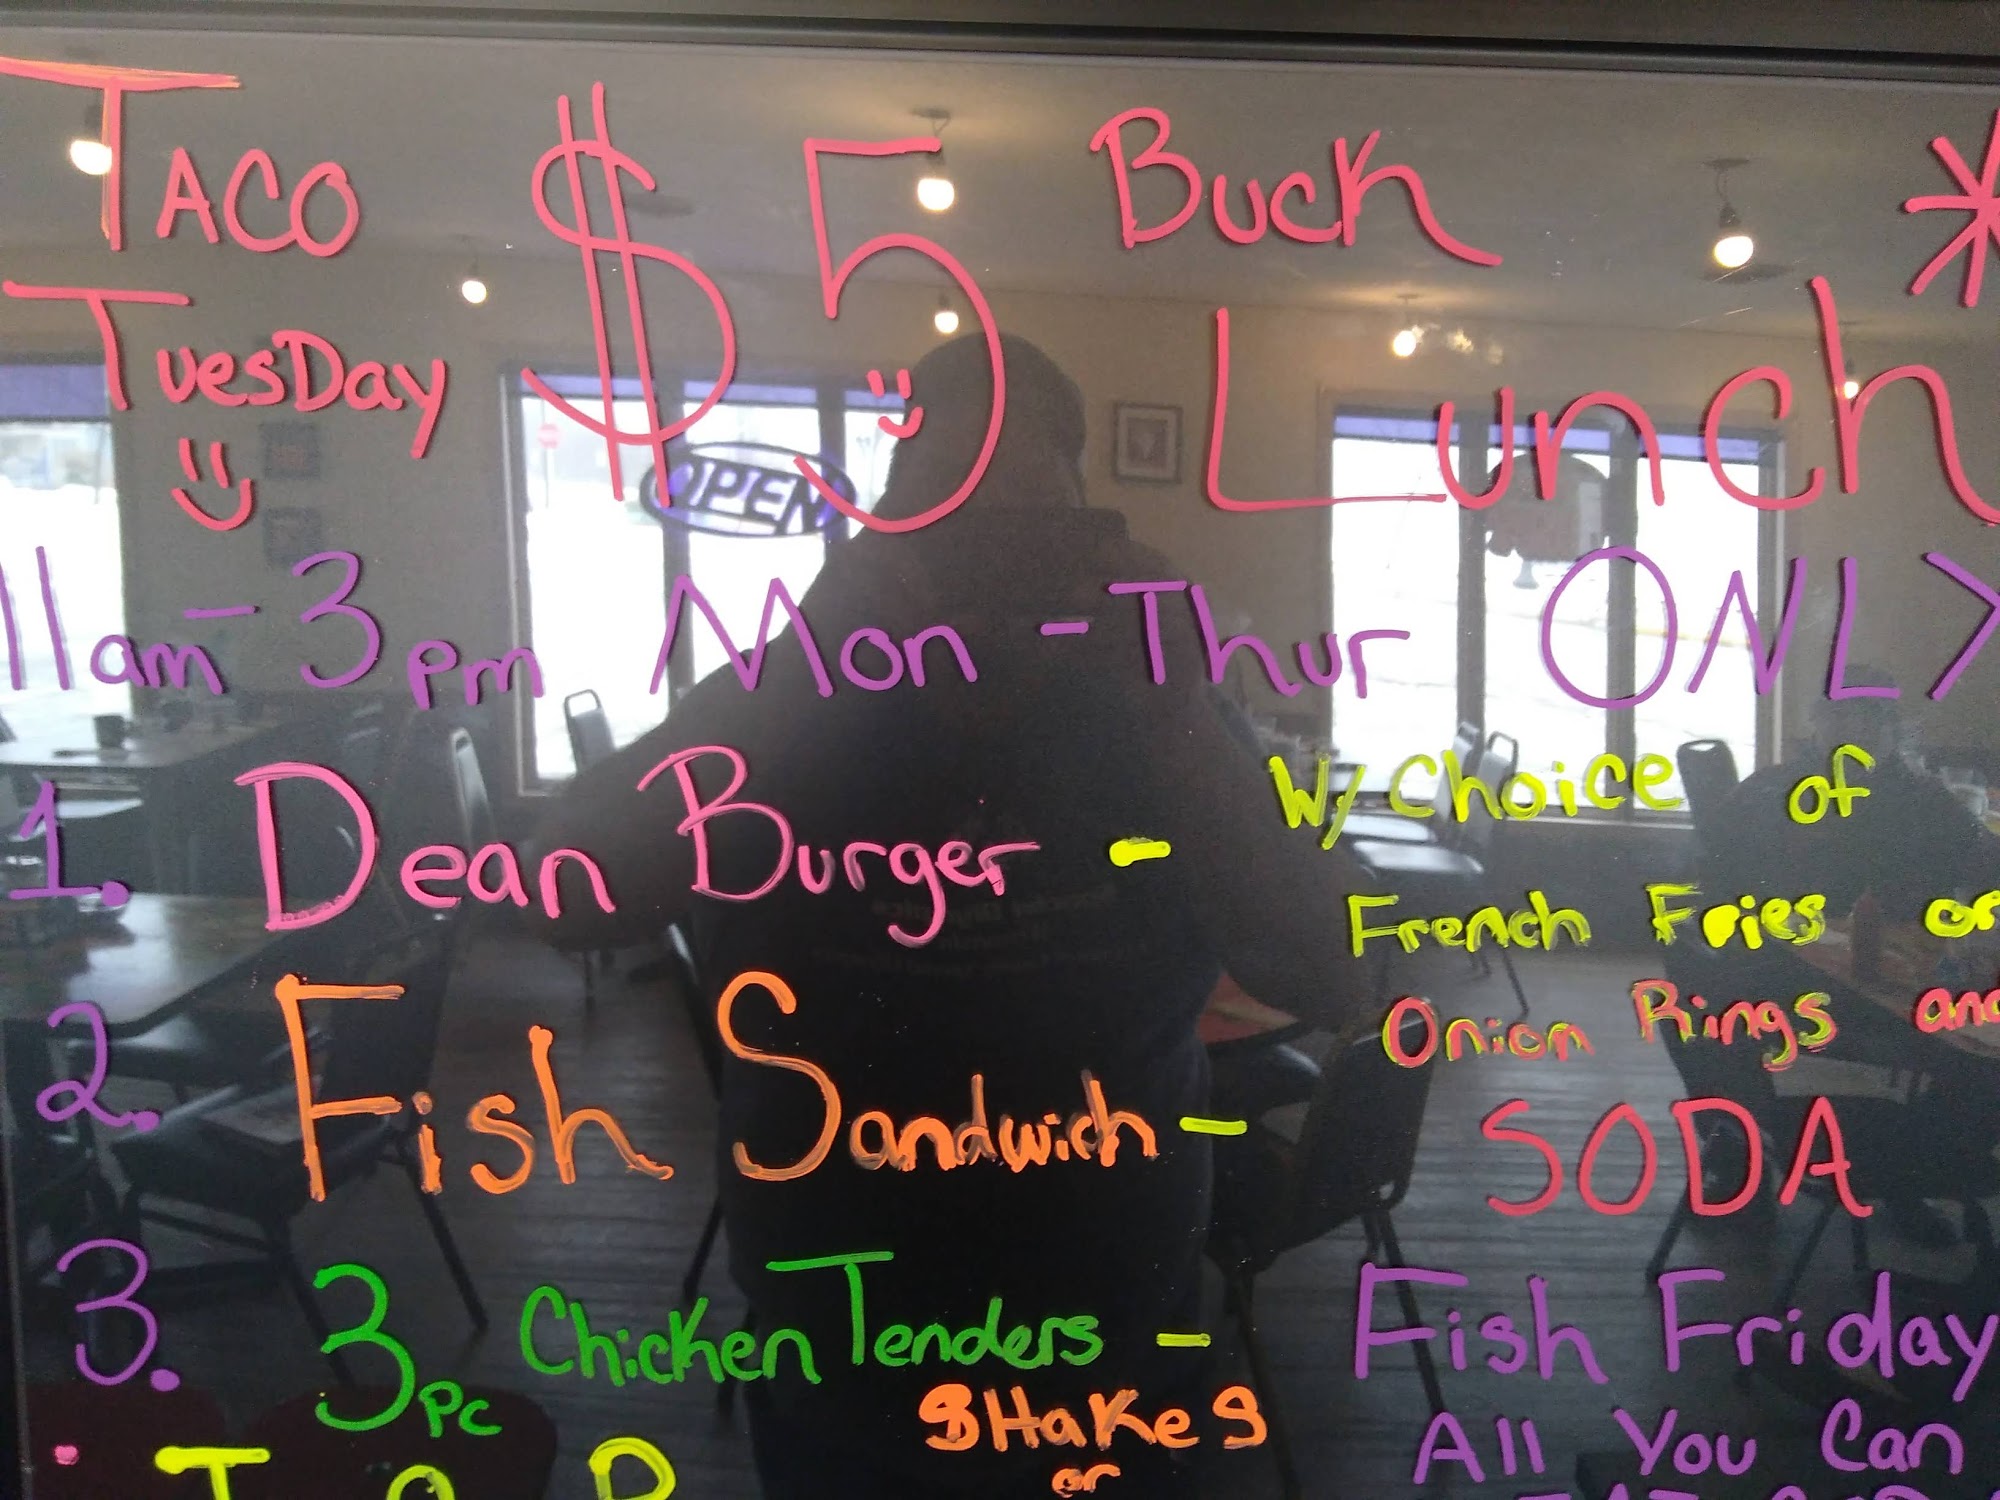 Taco $5 Buck
Tuesday Lunch
OPEN
11am - 3pm Mon - Thur ONLY
1. Dean Burger - w/ Choice of
French Fries or
Onion Rings and
2. Fish Sandwich - SODA
3. 3pc Chicken Tenders -
Fish Friday
SHakes
or
All You Can